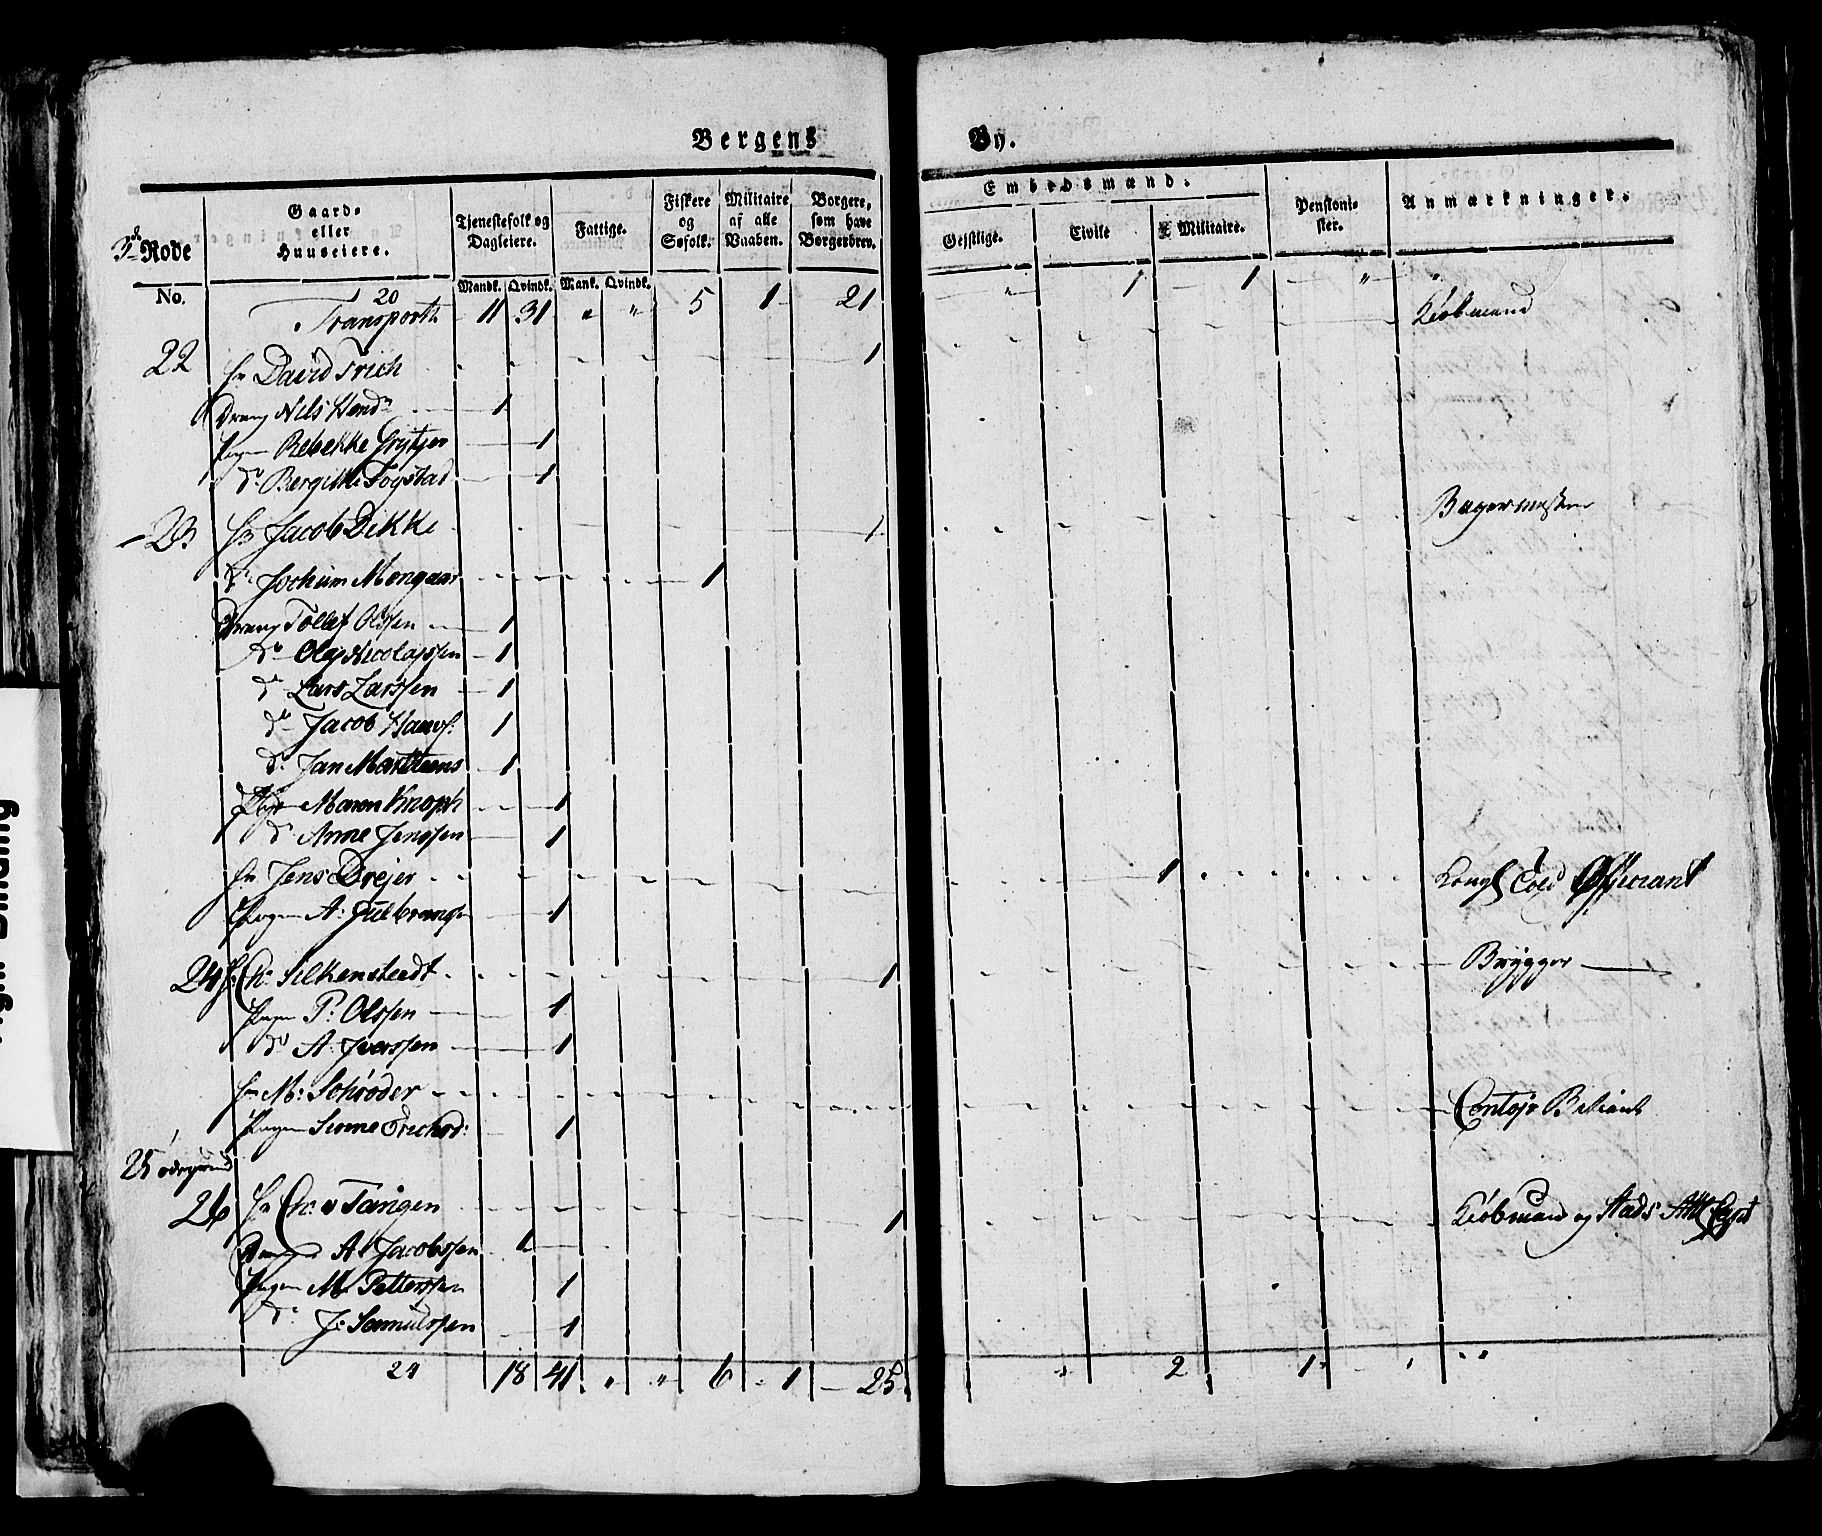 Bergens By.
3de Rode
No.
Gaard- eller Huuseiere.
Tjenestefolk og Dagleiere.
Mandk. Qvindk.
Fattige.
Mank. Qvindk.
Fiskere og Søfolk.
Militaire af alle Vaaben.
Borgere, som have Borgerbrev.
Embedsmænd.
Gejstlige. Civile Militaire.
Pensionister.
Anmærkninger.
20
Transporth 11 31 " " 5 1 21 " 1 1 " "
22 Hr David Frich 1 Kiøbmand
Dreng Nils Hend 1
Pigen Rebekke Grytjer 1
do Bergitte Fogstad 1
23 Hr Jacob Dekke 1 Bagermester
do Jochum Mongaar 1
Dreng Tollef Olssen 1
do Ole Nicolajssen 1
do Lars Larssen 1
do Jacob Hansf: 1
do Jan Marthens 1
Pige Maren Knoph 1
do Anne Jenssen 1
Hr Jens Drejer 1 Kongl Told Officiant
Pigen A: Gulbrands 1
24 Hr Ch: Silkenstedt 1 Brygger
Pigen P: Olssen 1
do A: Iverssen 1
Hr M: Schrøder Contoir Betient
Pigen Sirene Erichsd: 1
25 ødegrund
26 Hr Ch: v Tangen 1 Kiøbmand og Stads Capt
Dreng A: Jacobssen 1
Pigen M: Petterssen 1
do J: Samuelssen 1
24 18 41 " " 6 1 25 " 2 1 " "